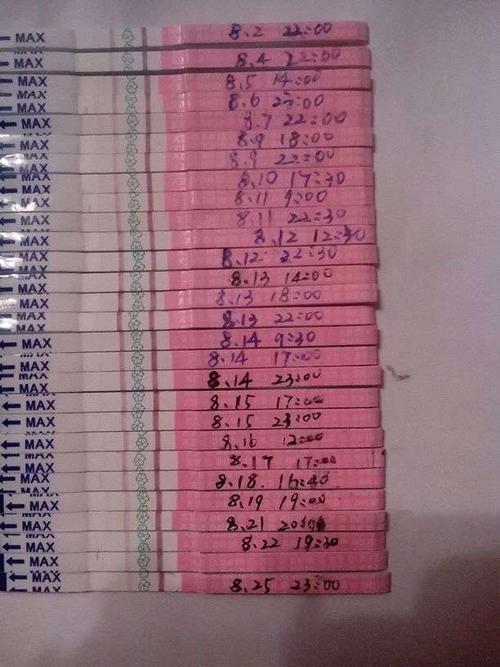 MAX 8.2 22:00
MAX 8.4 22:00
MAX 8.5 14:00
MAX 8.6 23:00
MAX 8.7 22:00
MAX 8.9 18:00
MAX 8.9 22:00
MAX 8.10 17:30
MAX 8.11 9:00
MAX 8.11 22:30
MAX 8.12 12:30
MAX 8.12 22:30
MAX 8.13 14:00
MAX 8.13 18:00
MAX 8.13 22:00
MAX 8.14 9:30
MAX 8.14 17:00
MAX 8.14 23:00
MAX 8.15 17:00
MAX 8.15 23:00
MAX 8.16 12:00
MAX 8.17 17:00
MAX 8.18. 16:40
MAX 8.19 19:00
MAX 8.21
MAX 8.22 19:30
MAX
MAX 8.25 23:00